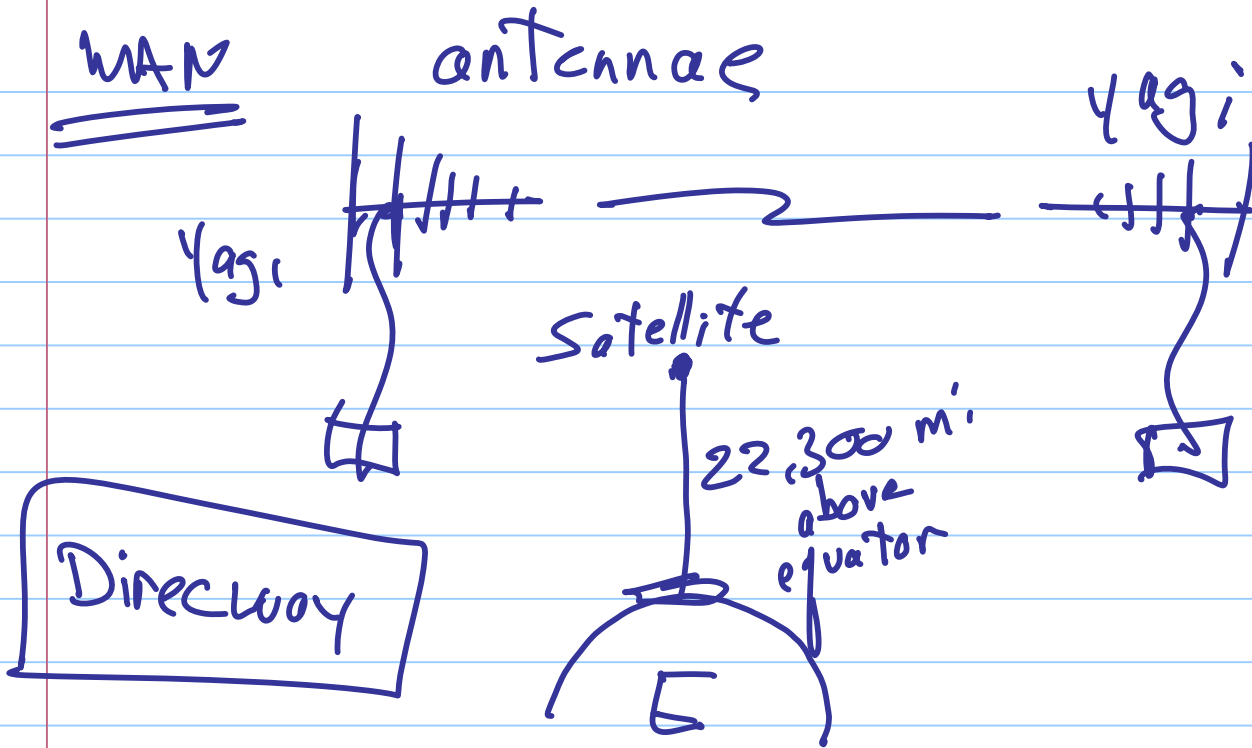 WAN antennae
Yagi
Yagi
Satellite
22,300 mi
above
equator
Direcway
E